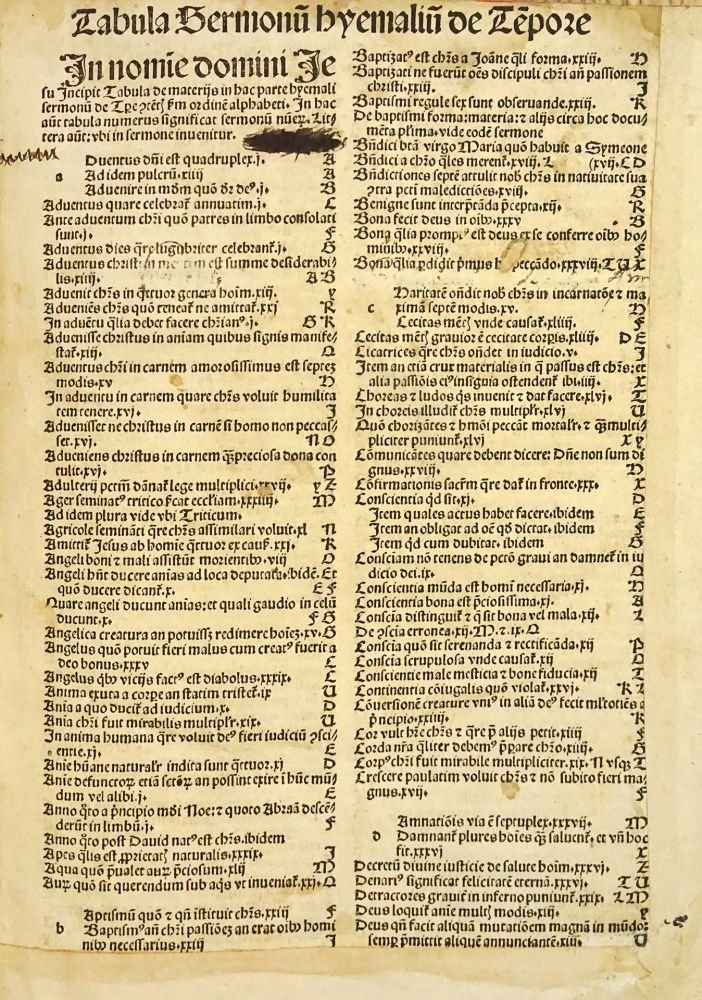 Tabula Sermonū hyemaliū de Tēpore
In nomīe domini Je
su Incipit Tabula de materijs in hac parte hyemali
sermonū de Tꝑe ꝯtētꝭ ẜm ordinē alphabeti. In hac
aūt tabula numerus significat sermonū nūeꝝ. Lit⸗
tera aūt: vbi in sermone inuenitur.
Duentus dn̄i est quadruplex.j. A
a Ad idem pulcrū.xiiij A
Aduenire in mōm quō dr̄ deꝰ.j. B
Aduentus quare celebrat̄ annuatim.j. C
Ante aduentum chr̄i quō patres in limbo consolati
sunt.j. F
Aduentus dies qr̄e lugubriter celebrant̄.j. G
Aduentus christi in est summe desiderabi⸗
lis.xiiij. A B
Aduenit chr̄s in q̄ttuor genera hoīm.xiij. y
Adueniēs chr̄s quō teneat̄ ne amittat̄.xxj R
In aduētu q̄lia debet facere chr̄ianꝰ.j. G K
Aduenisse christus in aniam quibus signis manife⸗
stat̄.xij. Q
Aduentus chr̄i in carnem amorosissimus est septeꝫ
modis.xv H
In aduentu in carnem quare chr̄s voluit humilita
tem tenere.xvj. I
Aduenisset ne christus in carnē si homo non peccas⸗
set.xvj. N O
Adueniens christus in carnem q̄ꝫ preciosa dona con
tulit.xvj. P
Adulterij pctm̄ dānat̄ lege multiplici.xxvij. y Z
Ager seminatꝰ tritico ſicat eccliam.xxxiiij. M
Ad idem plura vide vbi Triticum.
Agricole semināti qr̄e chr̄s assimilari voluit.xl N
Amittit̄ Jesus ab homīe q̄ttuor ex causꝭ.xxj. K
Angeli boni ⁊ mali assistūt morientibꝰ.viij O
Angeli hn̄t ducere anīas ad loca deputata.ibidē. Et
quō ducere dicant̄.x. E F
Quare angeli ducunt anīas: et quali gaudio in celū
ducunt.x. F G
Angelica creatura an potuissꝫ redimere hoīeꝫ.xv. G
Angelus quō potuit fieri malus cum creatꝰ fuerit a
deo bonus.xxxv C
Angelus qb̄ꝰ vicijs factꝰ est diabolus.xxxix. C
Anima exuta a corꝑe an statim tristet̄.ix U
Anīa a quo ducit̄ ad iudicium.x. D
Anīa chr̄i fuit mirabilis multipl̄r.xix. U
In anima humana qr̄e voluit deꝰ fieri iudiciū ꝯsci⸗
entie.xj. E
Anīe hūane natural̄r indita sunt q̄ttuor.xj D
Anīe defunctoꝝ etiā sctōꝝ an possint exire ī hūc mū⸗
dum vel alibi.j. E
Anno q̄to a prīcipio mōi Noe: ⁊ quoto Abraā descē⸗
derūt in limbū.j. F
Anno q̄to post Dauid natꝰ est chr̄s.ibidem
Apes q̄lis est ꝓprietatꝭ naturalis.xxxix. I
Aqua quō p̄ualet auꝝ p̄ciosum.xlij M
Auꝝ quō sit querendum sub aqꝭ vt inueniat̄.xxj. Q
Aptismū quō ⁊ qn̄ īstituit chr̄s.xxiij F
b Baptismꝰ an̄ chr̄i passiōeꝫ an erat oībꝰ homi
nibꝰ necessarius.xxiij I
Baptizatꝰ est chr̄s a Joāne q̄li forma.xxiij. H
Baptizati ne fuerūt oēs discipuli chr̄i an̄ passionem
christi.xxiij. I
Baptismi regule sex sunt obseruande.xxiij. K
De baptismi forma: materia: ⁊ alijs circa hoc docu⸗
mēta pl̄ima. vide eodē sermone
Bn̄dici btā virgo Maria quō habuit a Symeone
Bn̄dici a chr̄o q̄les merent̄.xviij. L (xvij. C D
Bn̄dictiones septē attulit nob̄ chr̄s in natiuitate sua
ꝯtra pcti maledictiōes.xvij. G
Benigne sunt interp̄tāda p̄cepta.xij. R
Bona fecit deus in oībꝰ.xxxv B
Bona q̄lia promptꝰ est deus ex se conferre oībꝰ ho⸗
minibꝰ.xxviij. F
Bona q̄lia ꝑdidit p̄mus h peccādo.xxxviij. T U X
Haritatē on̄dit nob̄ chr̄s in incarnatōe ⁊ ma
c ximā septē modis.xv. H
Cecitas mētꝭ vnde causat̄.xliiij. F
Cecitas mētꝭ grauior ē cecitate corꝑis.xliiij. D E
Cicatrices qr̄e chr̄s on̄det in iudicio.v. I
Item an etiā crux materialis in q̄ passus est chr̄s: et
alia passiōis eiꝰ insignia ostendent̄ ibi.iiij. X
Choreas ⁊ ludos q̄s inuenit ⁊ dat facere.xlvj. T
In choreis illudit̄ chr̄s multipl̄r.xlvj U
Quō chorizātes ⁊ hmōi peccāt mortal̄r. ⁊ q̄ꝫ multi⸗
pliciter puniunt̄.xlvj X y
Cōmunicātes quare debent dicere: Dn̄e non sum di
gnus.xxviij. H
Cōfirmationis sacrm̄ qr̄e dat̄ in fronte.xxx. X
Conscientia qd̄ sit.xj. D
Item quales actus habet facere.ibidem E
Item an obligat ad oē qd̄ dictat. ibidem F
Item qd̄ cum dubitat. ibidem G
Consciam nō tenens de pctō graui an damnet̄ in iu
dicio dei.ix. Q
Conscientia mūda est homī necessaria.xj. H
Conscientia bona est p̄ciosissima.xj. A
Conscīa distinguit̄ ⁊ q̄ sit bona vel mala.xij. L
De ꝯscīa erronea.xij. M. ⁊ ix. Q
Conscīa quō sit serenanda ⁊ rectificāda.xij P
Conscīa scrupulosa vnde causat̄.xij O
Conscientie male mesticia ⁊ bone fiducia.xij T
Continentia cōiugalis quō violat̄.xxvj. K L
Cōuersionē creature vniꝰ in aliā deꝰ fecit ml̄totiēs a
p̄ncipio.xxiiij. K
Cor vult hr̄e chr̄s ⁊ qr̄e p̄ alijs petit.xiiij F
Corda nr̄a q̄liter debemꝰ p̄pare chr̄o.xiiij. G
Corpꝰ chr̄i fuit mirabile multipliciter.xix. N vsqꝫ T
Crescere paulatim voluit chr̄s ⁊ nō subito fieri ma⸗
gnus.xvij. F
Amnatiōis via ē septuplex.xxxvij. M
d Damnant̄ plures hoīes q̄ꝫ saluent̄. et vn̄ hoc
fit.xxxvj X
Decretū diuine iusticie de salute hoīm.xxxvj. Z
Denariꝰ significat felicitatē eternā.xxxvj. T U
Detractores grauit̄ in inferno puniunt̄.xxix. L M
Deus loquit̄ anīe multꝭ modis.xiij. y
Deus qn̄ facit aliquā mutatiōem magnā in mūdo:
semꝑ p̄mittit aliquē annunciantē.xiij. U